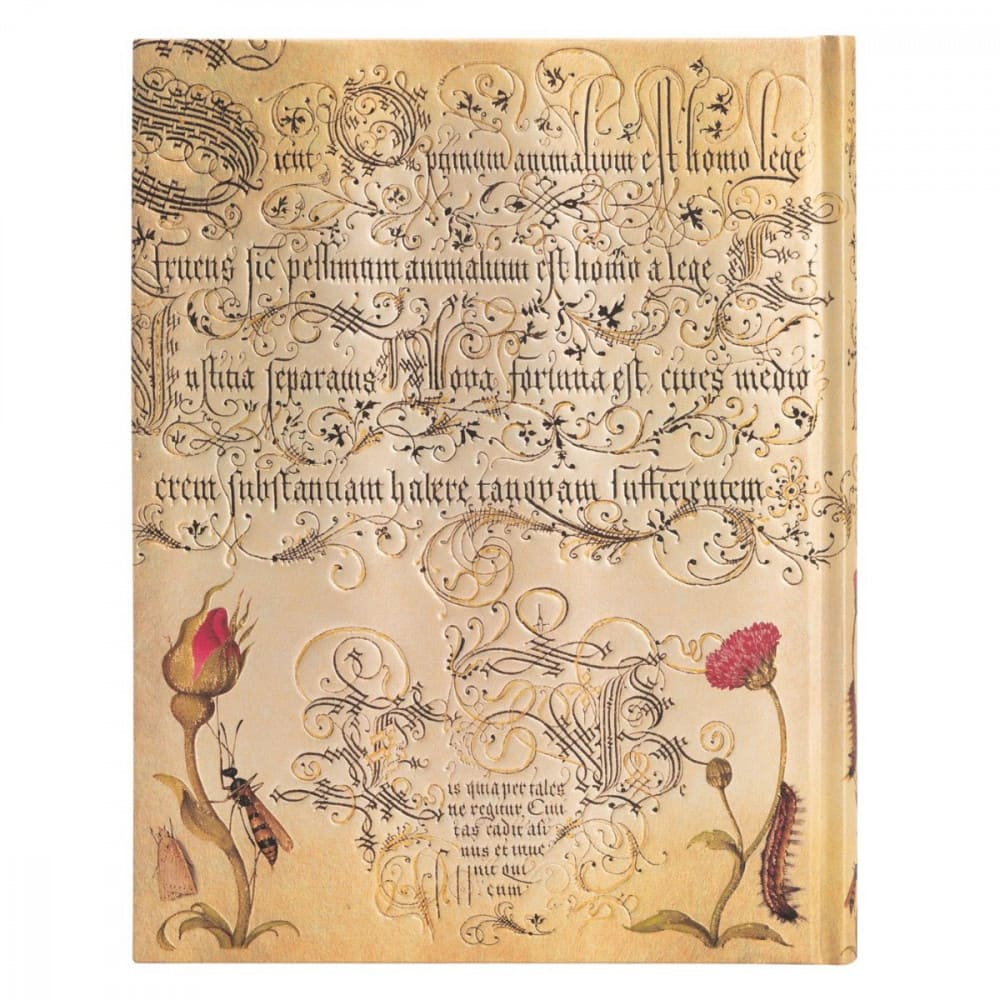 Sicut Optimum animalium est homo lege
fruens sic pessimum animalium est homo a lege
Iustitia separatus Nova fortuna est, cives medio
crem substantiam habere tanquam sufficientem
is quia per tales
ne regitur Civi
tas cadit asi
nus et inve
nit qui
cum